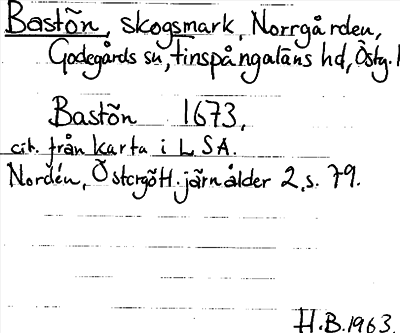 Bastõn, skogsmark, Norrgården,
Godegårds sn, Finspångaläns hd, Östg.
Bastõn 1673,
cit. från karta i LSA.
Nordén, Östergötl. järnålder 2, s. 79.
H.B. 1963.